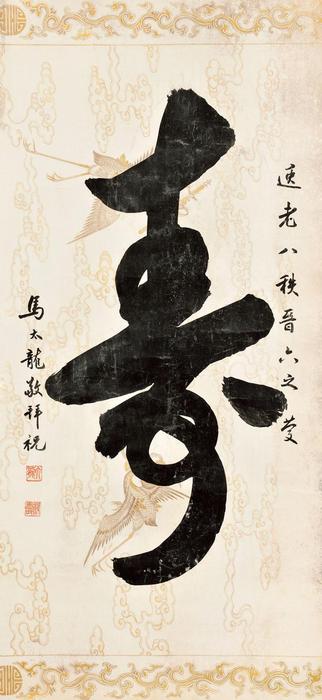 逺老八秩晉六之慶
壽
馬太龍敬拜祝